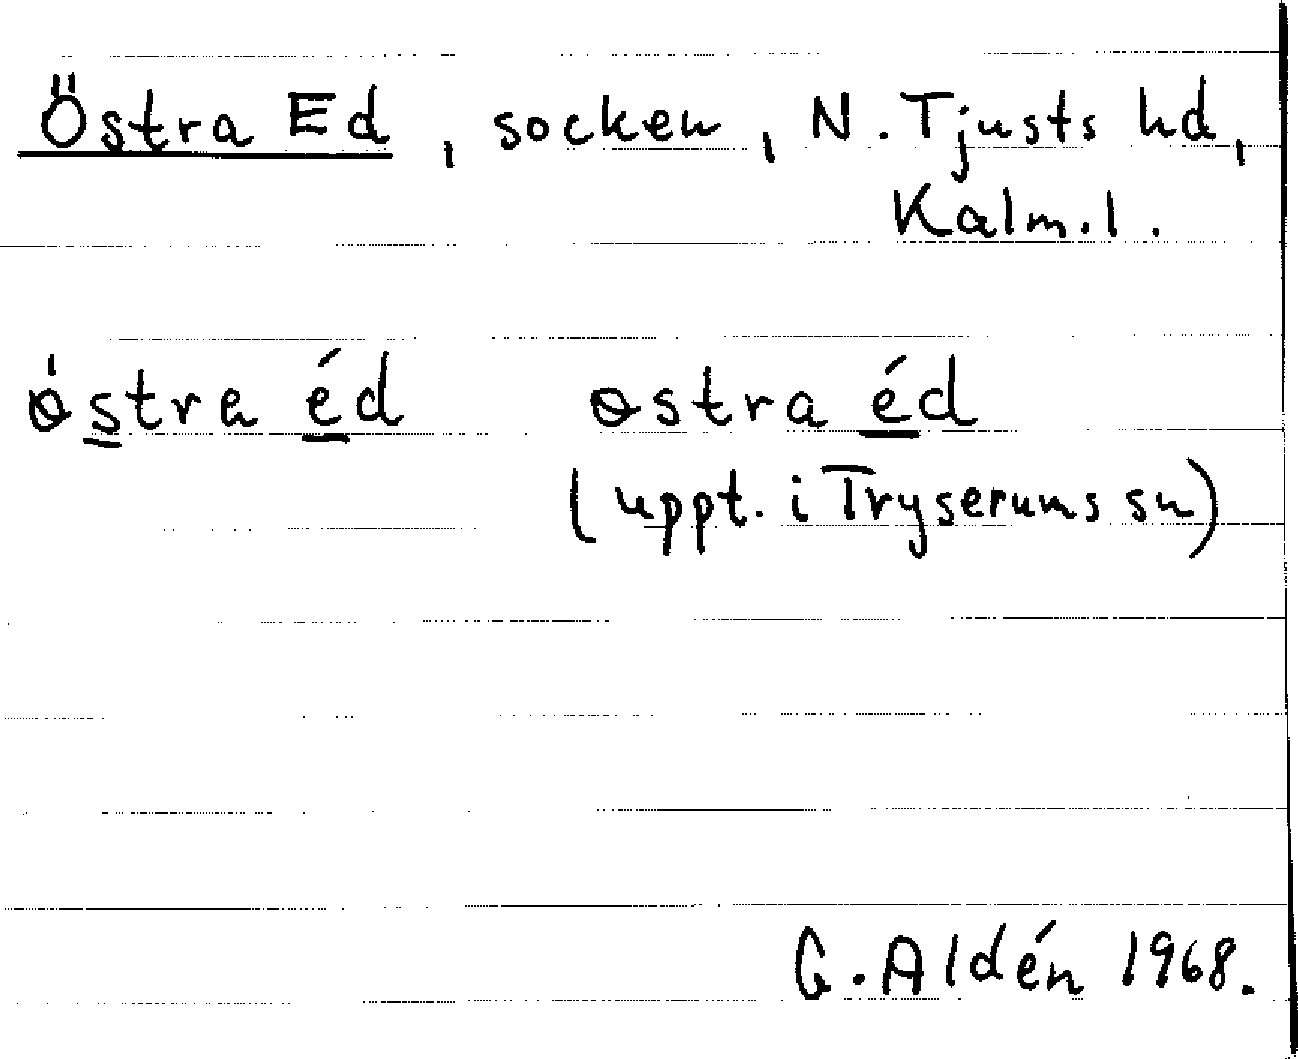 Östra Ed, socken, N. Tjusts hd,
Kalm. l.
ǿstra éd østra éd
(uppt. i Tryserums sn)
G. Aldén 1968.